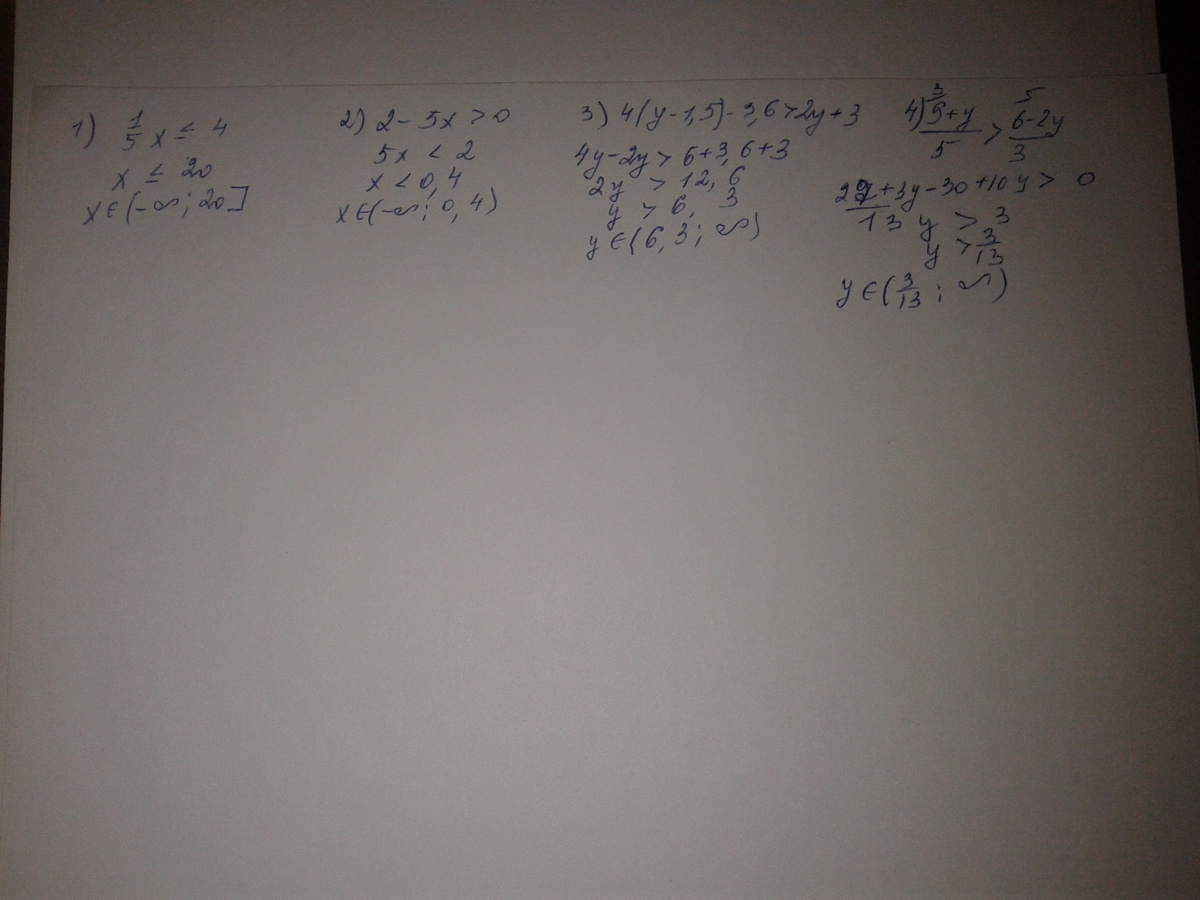 1) 1/5 x ≤ 4
x ≤ 20
x ∈ (-∞; 20]
2) 2 - 5x > 0
5x < 2
x < 0,4
x ∈ (-∞; 0,4)
3) 4(y-1,5)-3,6>2y+3
4y-2y > 6+3,6+3
2y > 12,6
y > 6,3
y ∈ (6,3; ∞)
4) 3 (9+y)/5 > 5 (6-2y)/3
+3y-30+10y > 0
13 y > 3
y > 3/13
y ∈ (3/13; ∞)